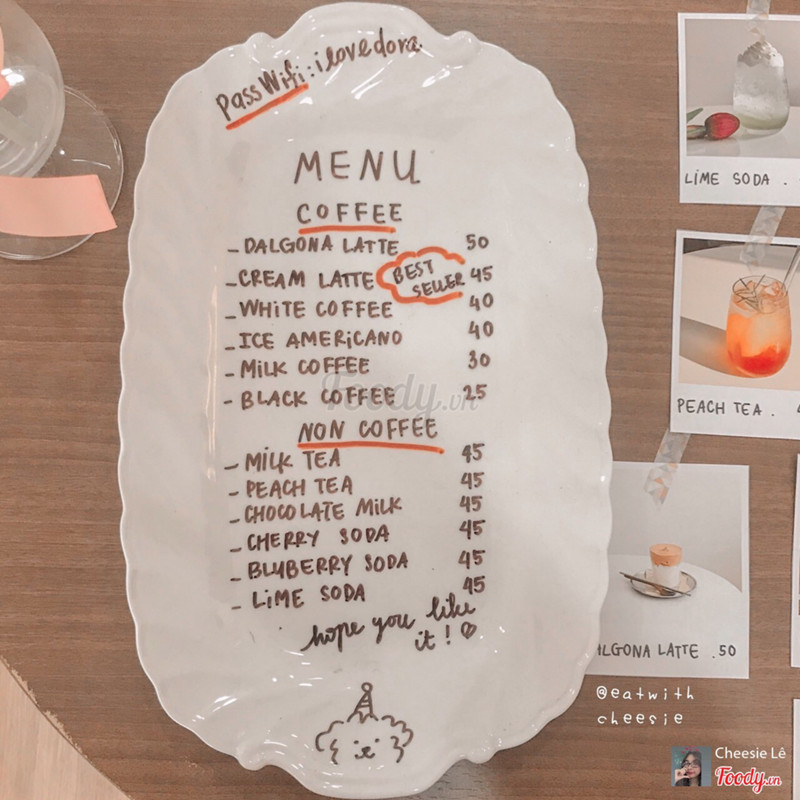 Pass Wifi: ilovedora
MENU
COFFEE
- DALGONA LATTE 50
- CREAM LATTE BEST SELLER 45
- WHITE COFFEE 40
- ICE AMERICANO 40
- MILK COFFEE 30
- BLACK COFFEE 25
Foody.vn
NON COFFEE
- MILK TEA 45
- PEACH TEA 45
- CHOCOLATE MILK 45
- CHERRY SODA 45
- BLUBERRY SODA 45
- LIME SODA 45
hope you like
it! ♡
LIME SODA .
PEACH TEA . 4
ALGONA LATTE .50
@eatwith
cheesie
Cheesie Lê
Foody.vn